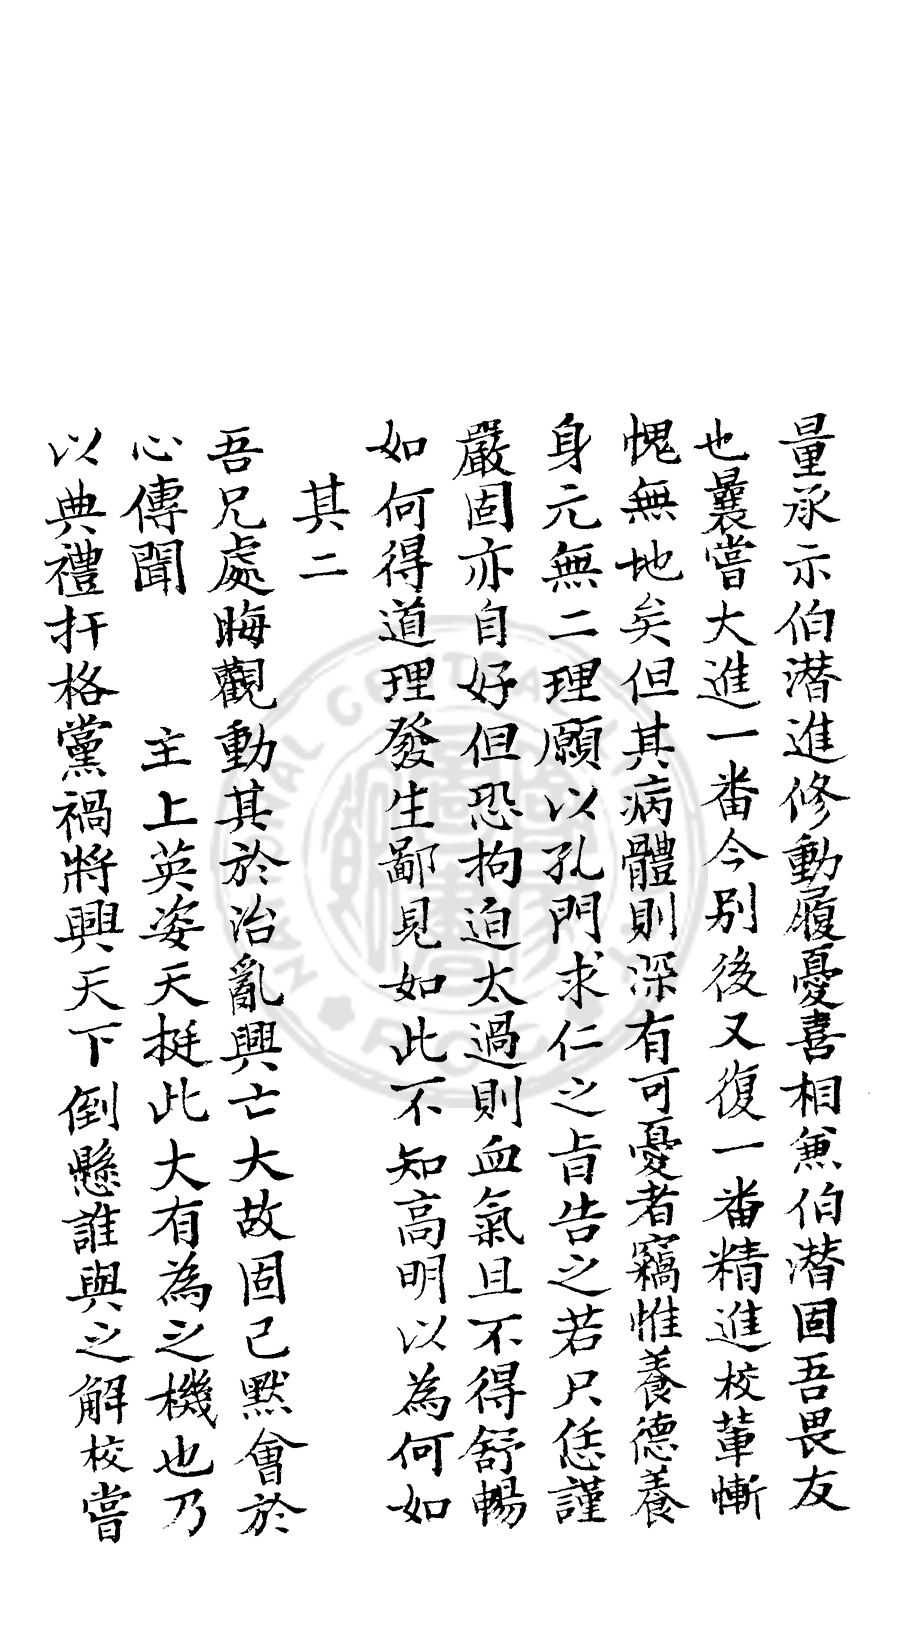 量承示伯潜進修動履憂喜相兼伯潜固吾畏友
也曩嘗大進一番今别後又復一番精進校軰慚
愧無地矣但其病體則深有可憂者竊惟養德養
身元無二理願以孔門求仁之旨告之若只恁謹
嚴固亦自好但恐拘迫太過則血氣且不得舒暢
如何得道理發生鄙見如此不知高明以為何如
其二
吾兄處晦觀動其於治亂興亡大故固已默會於
心傳聞 主上英姿天挺此大有為之機也乃
以典禮扞格黨禍將興天下倒懸誰與之解校嘗
NATIONAL CENTRAL